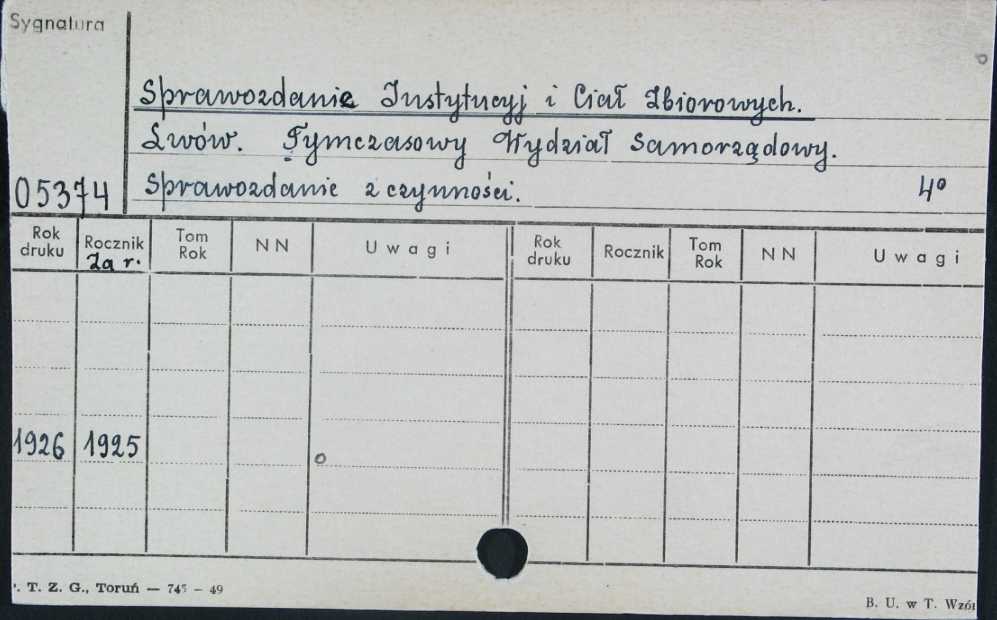 Sygnatura
Sprawozdanie Instytucyj i Ciał Zbiorowych.
Lwów. Tymczasowy Wydział Samorządowy.
05374 Sprawozdanie z czynności. 4º
Rok druku Rocznik Za r. Tom Rok NN Uwagi Rok druku Rocznik Tom Rok NN Uwagi
1926 1925
T. Z. G., Toruń — 745 – 49
B. U. w T. Wzór